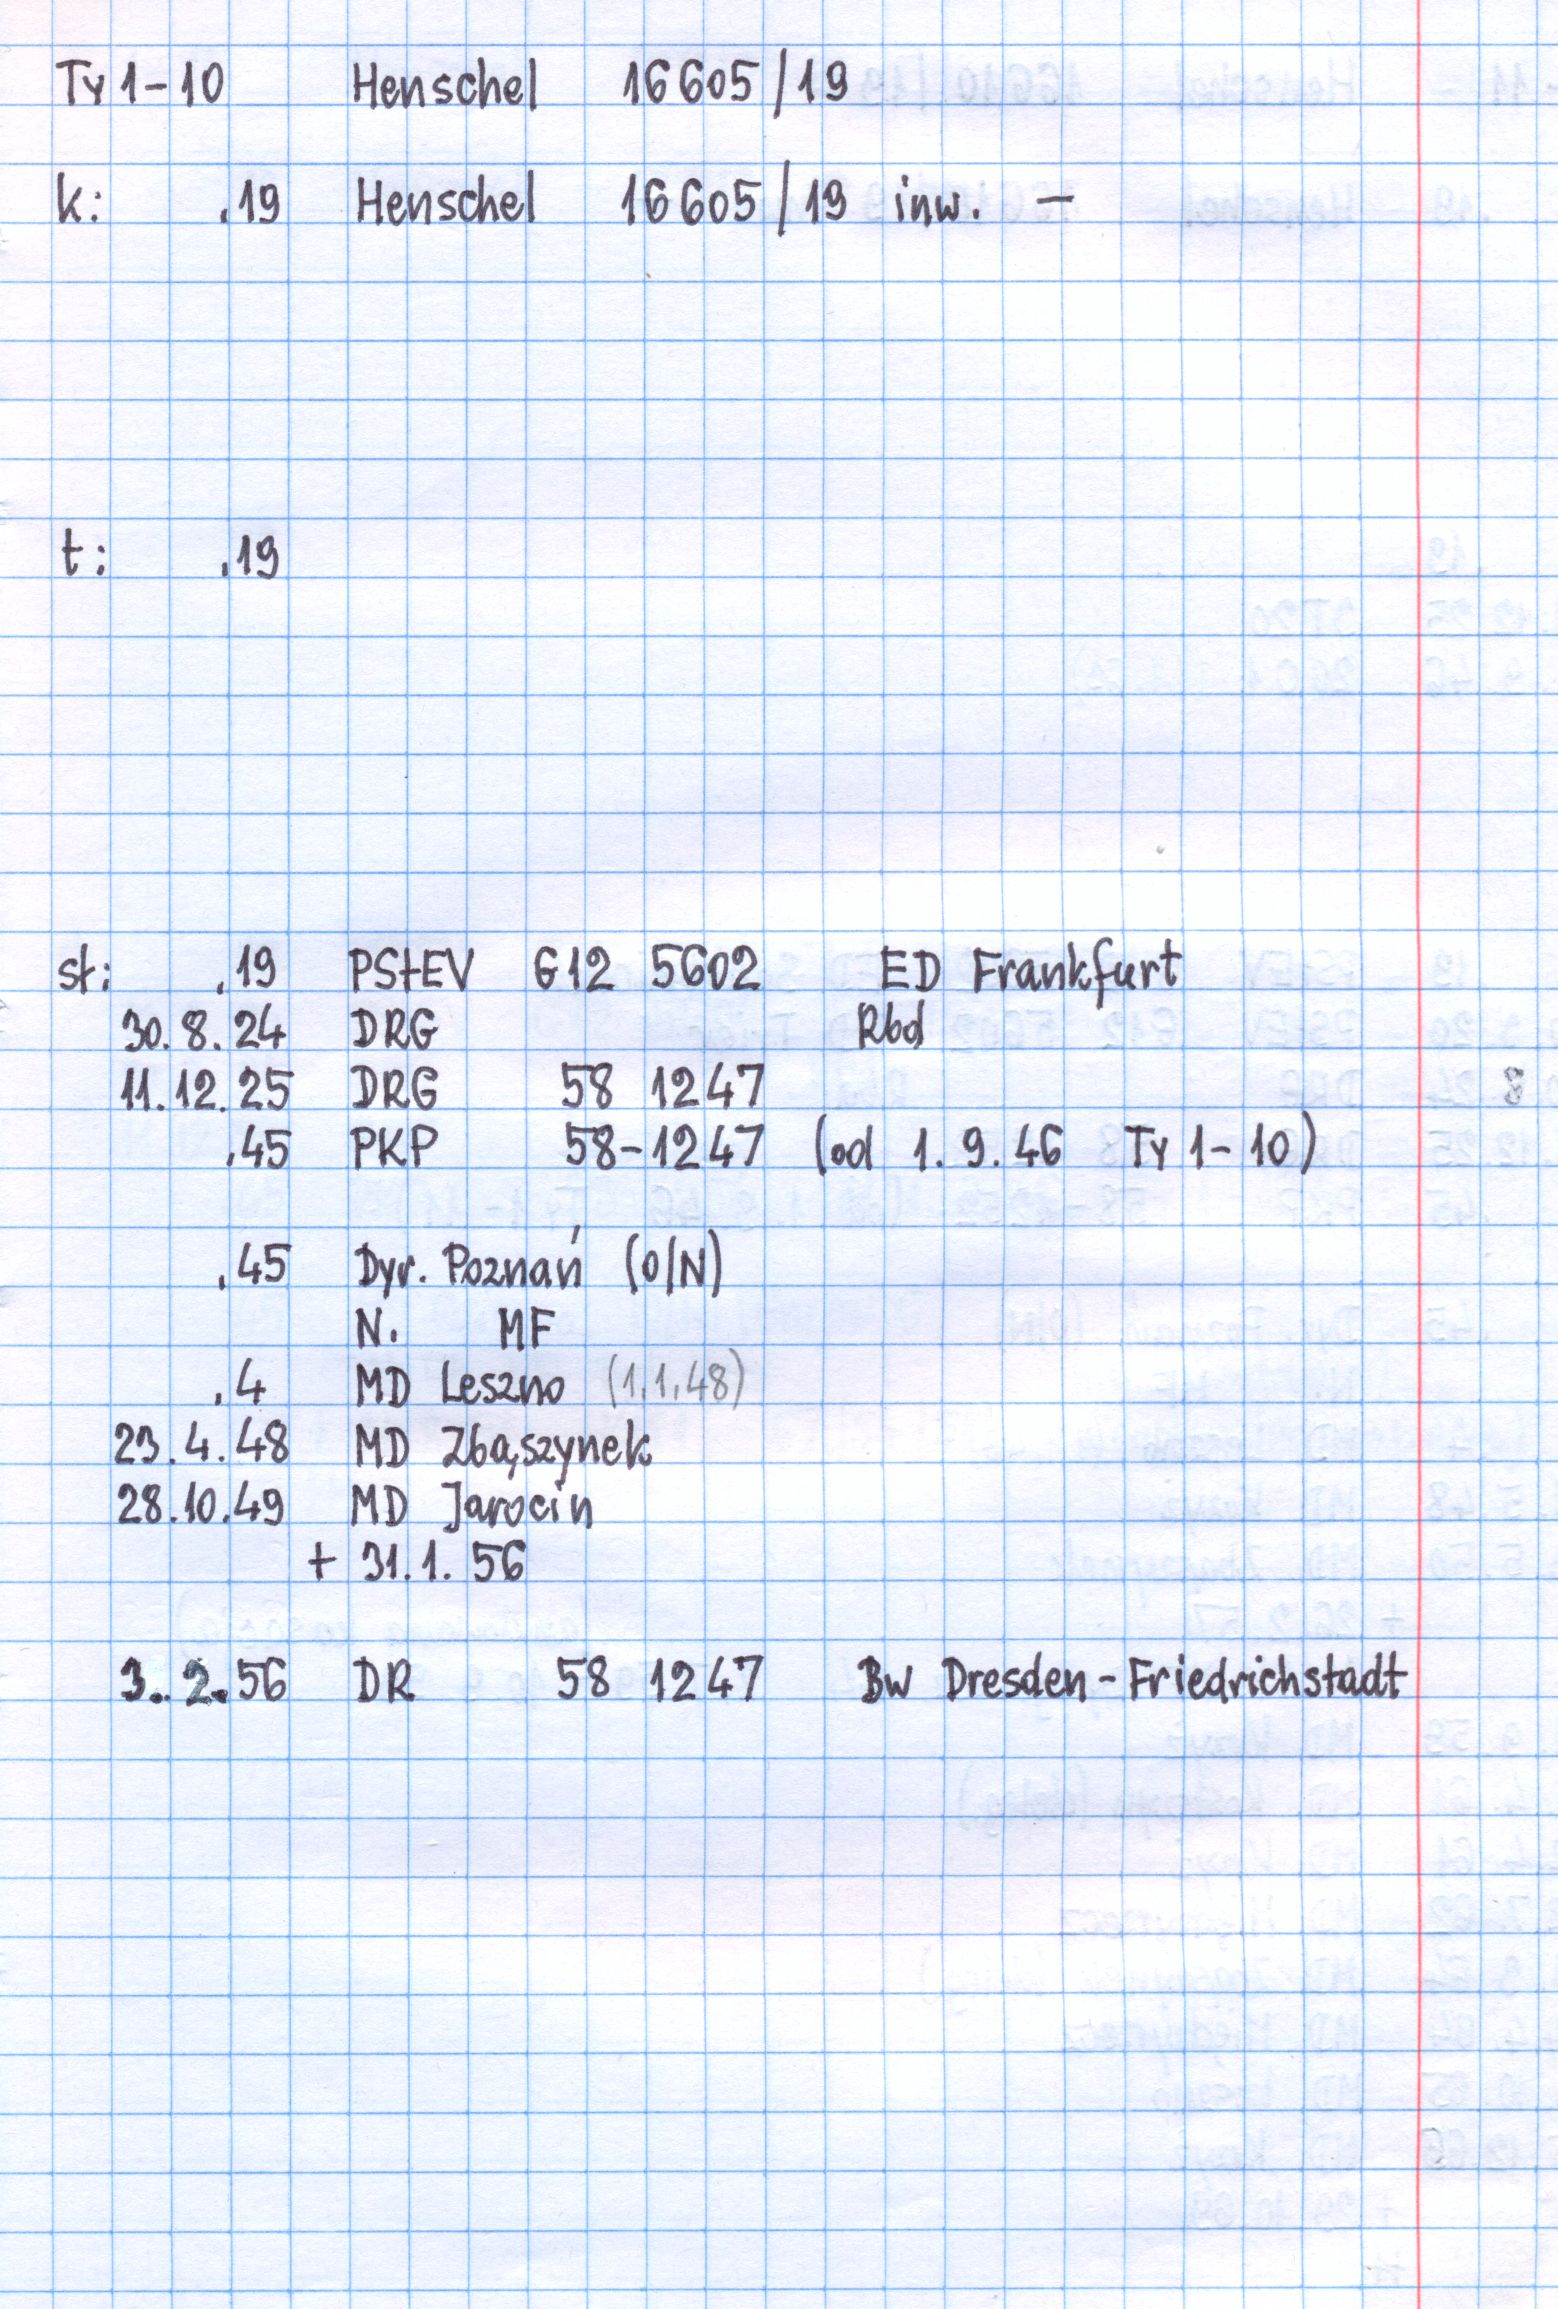 Ty 1-10 Henschel 16605/19
k: .19 Henschel 16605/19 inw. –
t: .19
st: .19 PStEV G12 5602 ED Frankfurt
30.8.24 DRG Rbd
11.12.25 DRG 58 1247
.45 PKP 58-1247 (od 1.9.46 Ty 1-10)
.45 Dyr. Poznań (O/N)
N. MF
.4 MD Leszno (1.1.48)
23.4.48 MD Zbąszynek
28.10.49 MD Jarocin
+ 31.1.56
3..2.56 DR 58 1247 Bw Dresden-Friedrichstadt